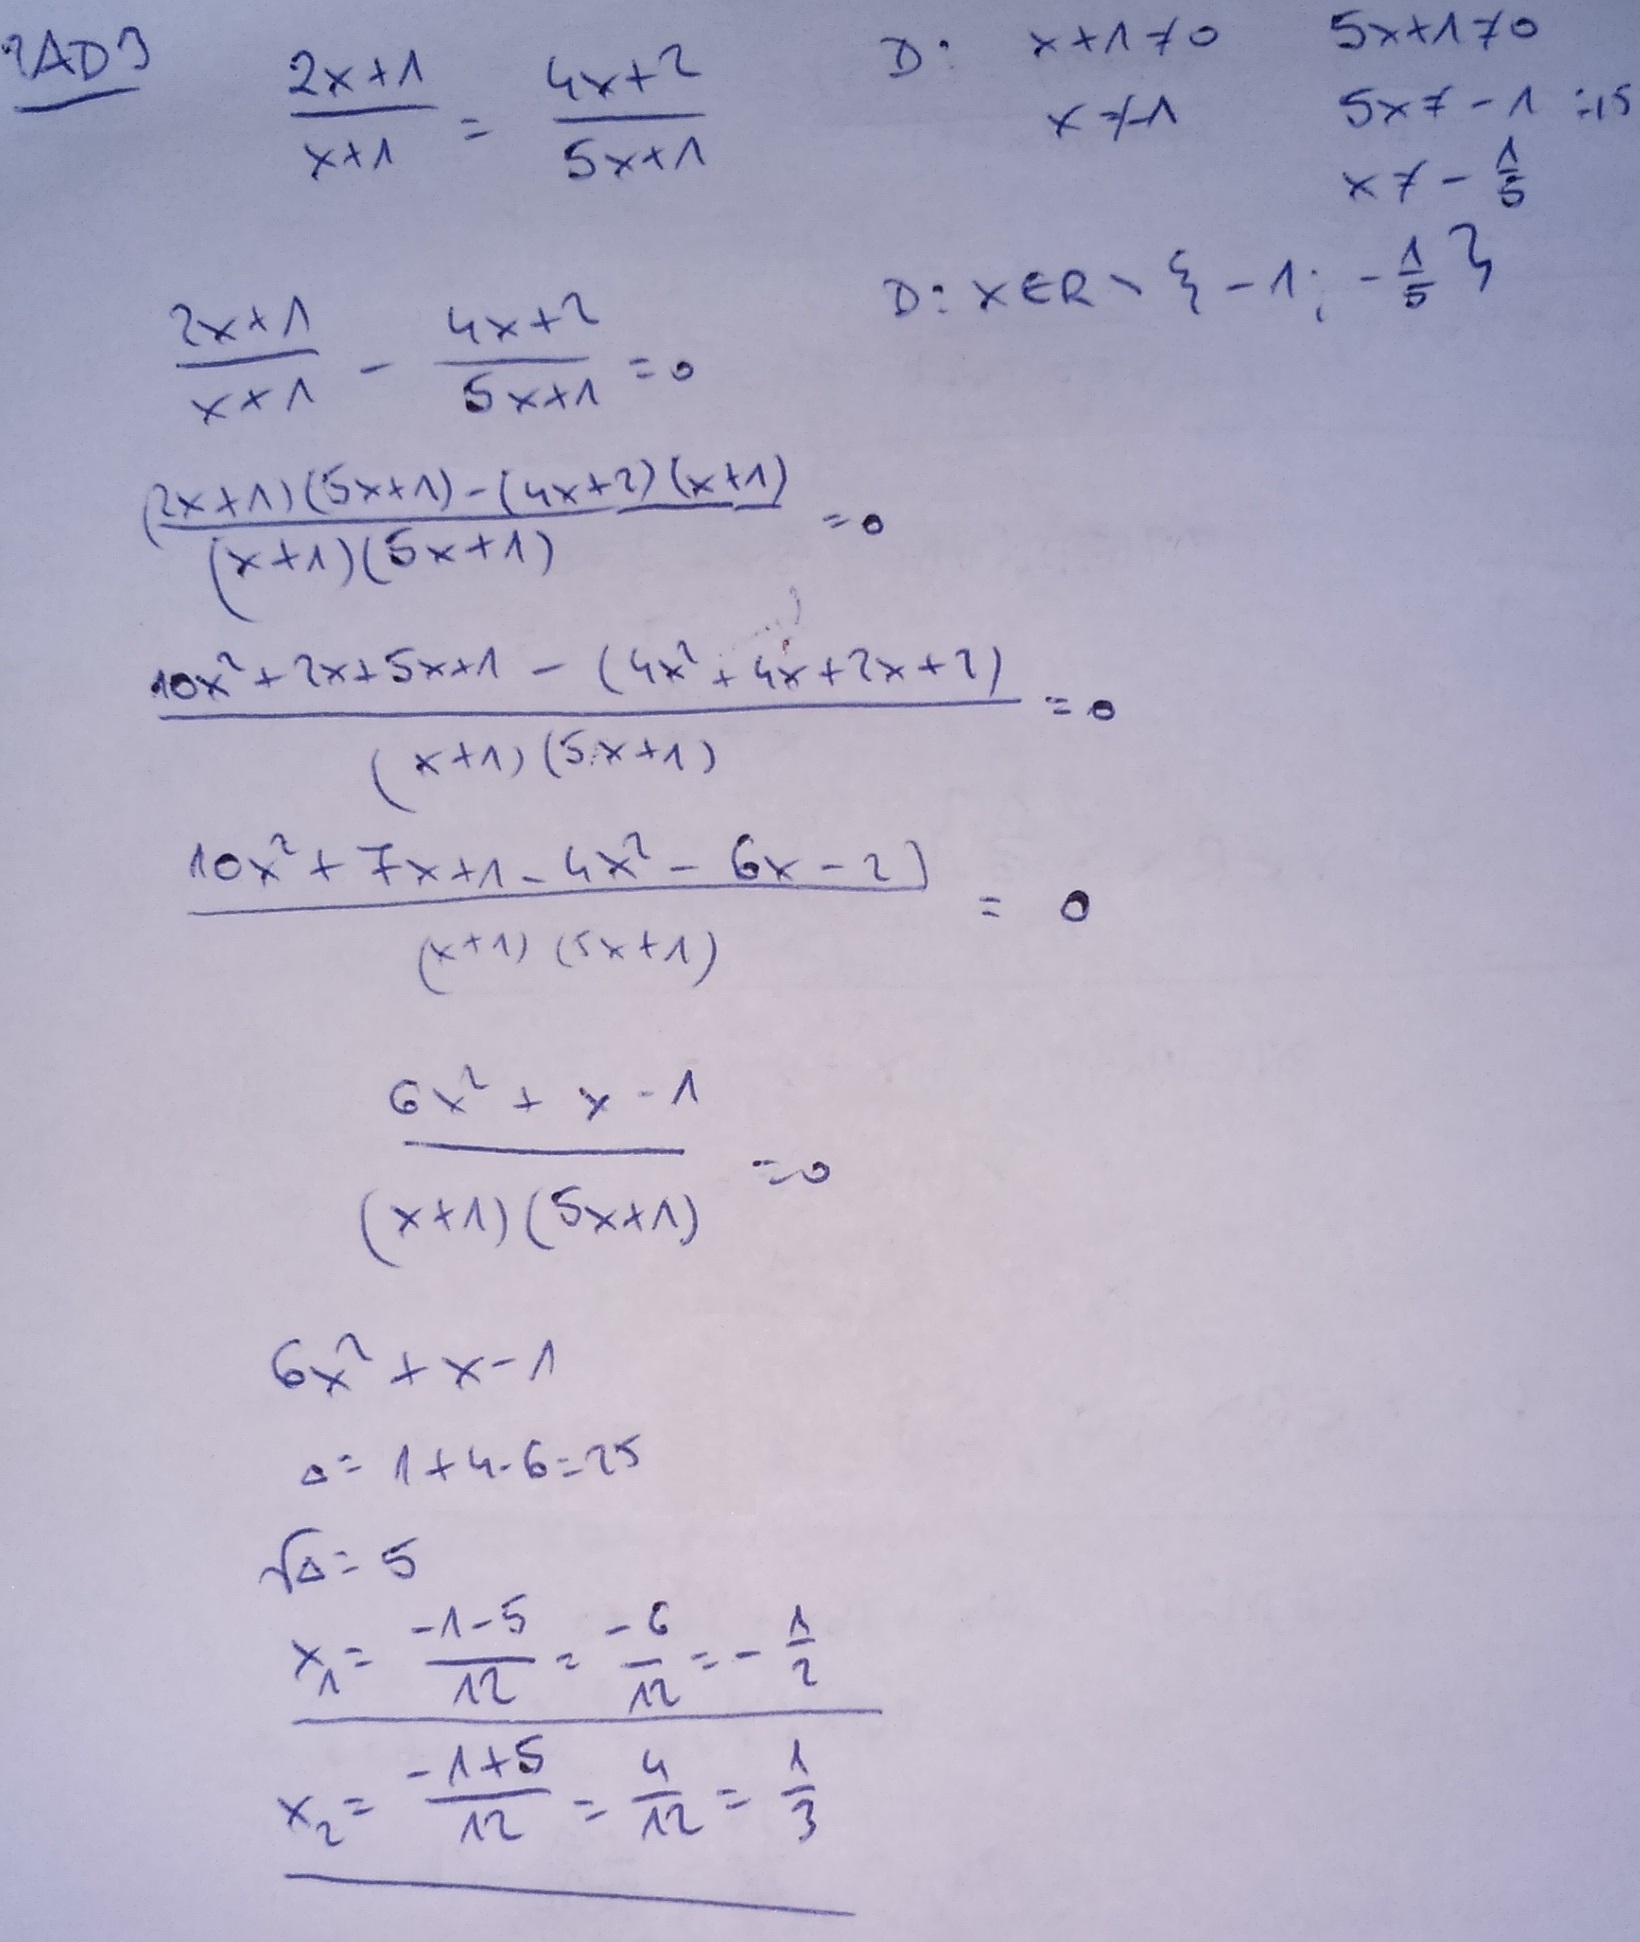 ZAD3
2x+1/x+1 = 4x+2/5x+1
D: x+1≠0 5x+1≠0
x≠-1 5x≠-1 :15
x≠-1/5
D: x∈R \ {-1; -1/5}
2x+1/x+1 - 4x+2/5x+1 =0
(2x+1)(5x+1)-(4x+2)(x+1)/(x+1)(5x+1) =0
10x²+2x+5x+1 - (4x²+4x+2x+2)/(x+1)(5x+1) =0
10x²+7x+1-4x²-6x-2)/(x+1)(5x+1) = 0
6x²+x-1/(x+1)(5x+1) =0
6x²+x-1
Δ= 1+4·6=25
√Δ=5
x₁= -1-5/12 = -6/12 = -1/2
x₂= -1+5/12 = 4/12 = 1/3